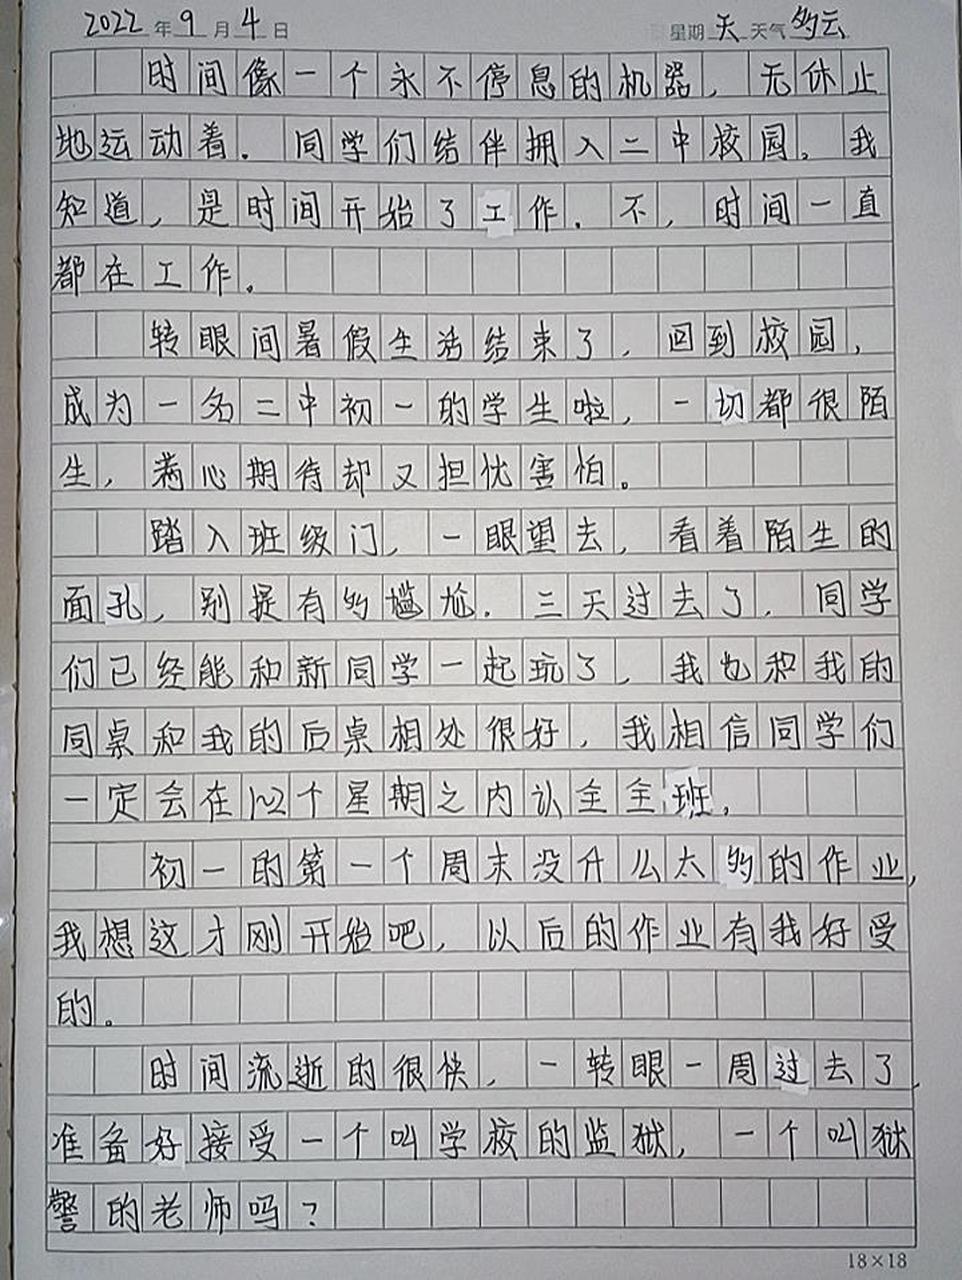 2022年9月4日 星期天 天气多云
时间像一个永不停息的机器，无休止
地运动着．同学们结伴拥入二中校园。我
知道，是时间开始了工作．不，时间一直
都在工作．
转眼间暑假生活结束了，回到校园，
成为一名二中初一的学生啦，一切都很陌
生，满心期待却又担忧害怕。
踏入班级门，一眼望去，看着陌生的
面孔，别提有多尴尬．三天过去了．同学
们已经能和新同学一起玩了，我也和我的
同桌和我的后桌相处很好，我相信同学们
一定会在1~2个星期之内认全全班．
初一的第一个周末没什么太多的作业，
我想这才刚开始吧，以后的作业有我好受
的。
时间流逝的很快，一转眼一周过去了，
准备好接受一个叫学校的监狱，一个叫狱
警的老师吗？
18×18